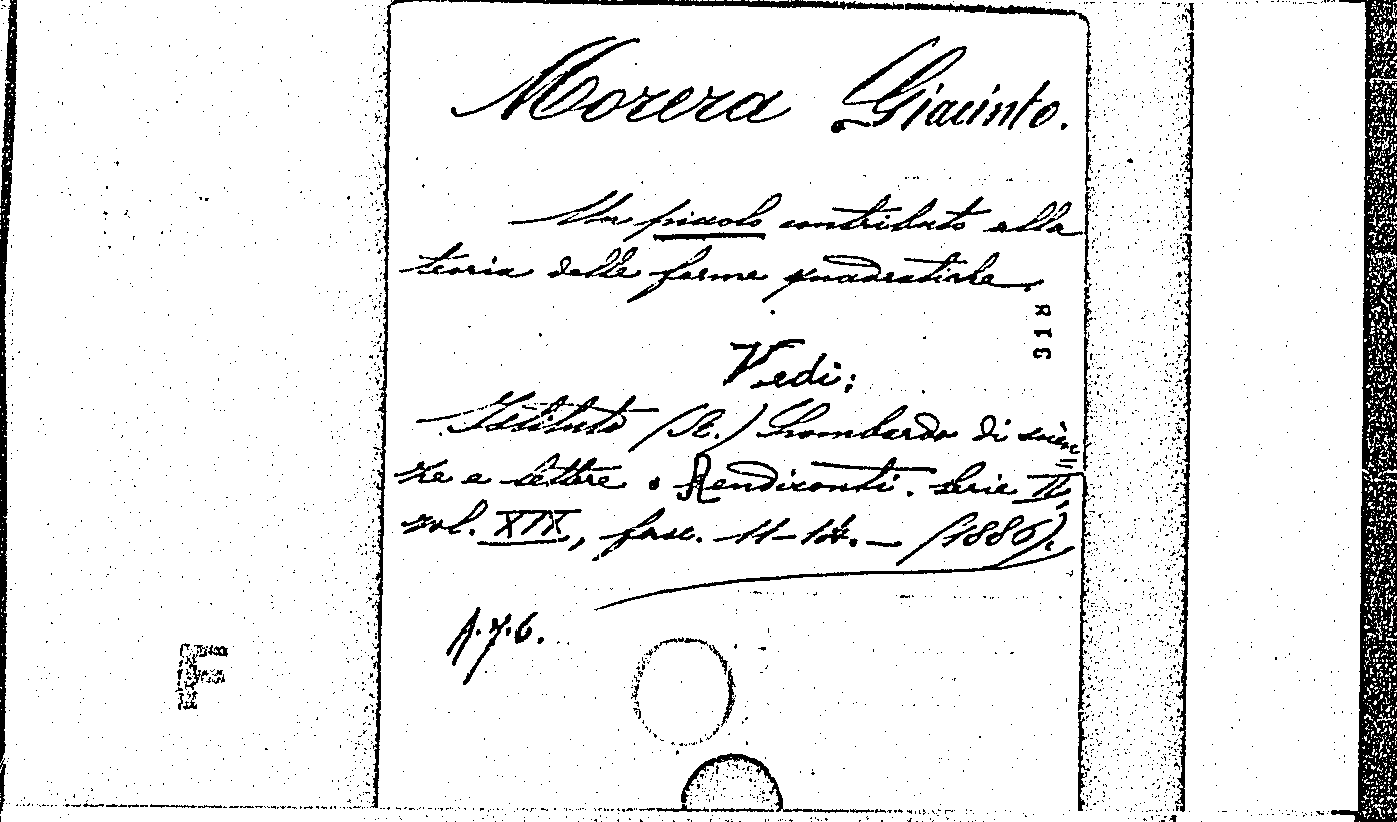 Morera Giacinto.
Un piccolo contributo alla
teoria delle forme quadratiche.
318
Vedi:
Istituto (R.) Lombardo di scien
ze e lettere. Rendiconti. Serie II,
vol. XIX, fasc. 11-12. — (1886).
A.7.6.
F